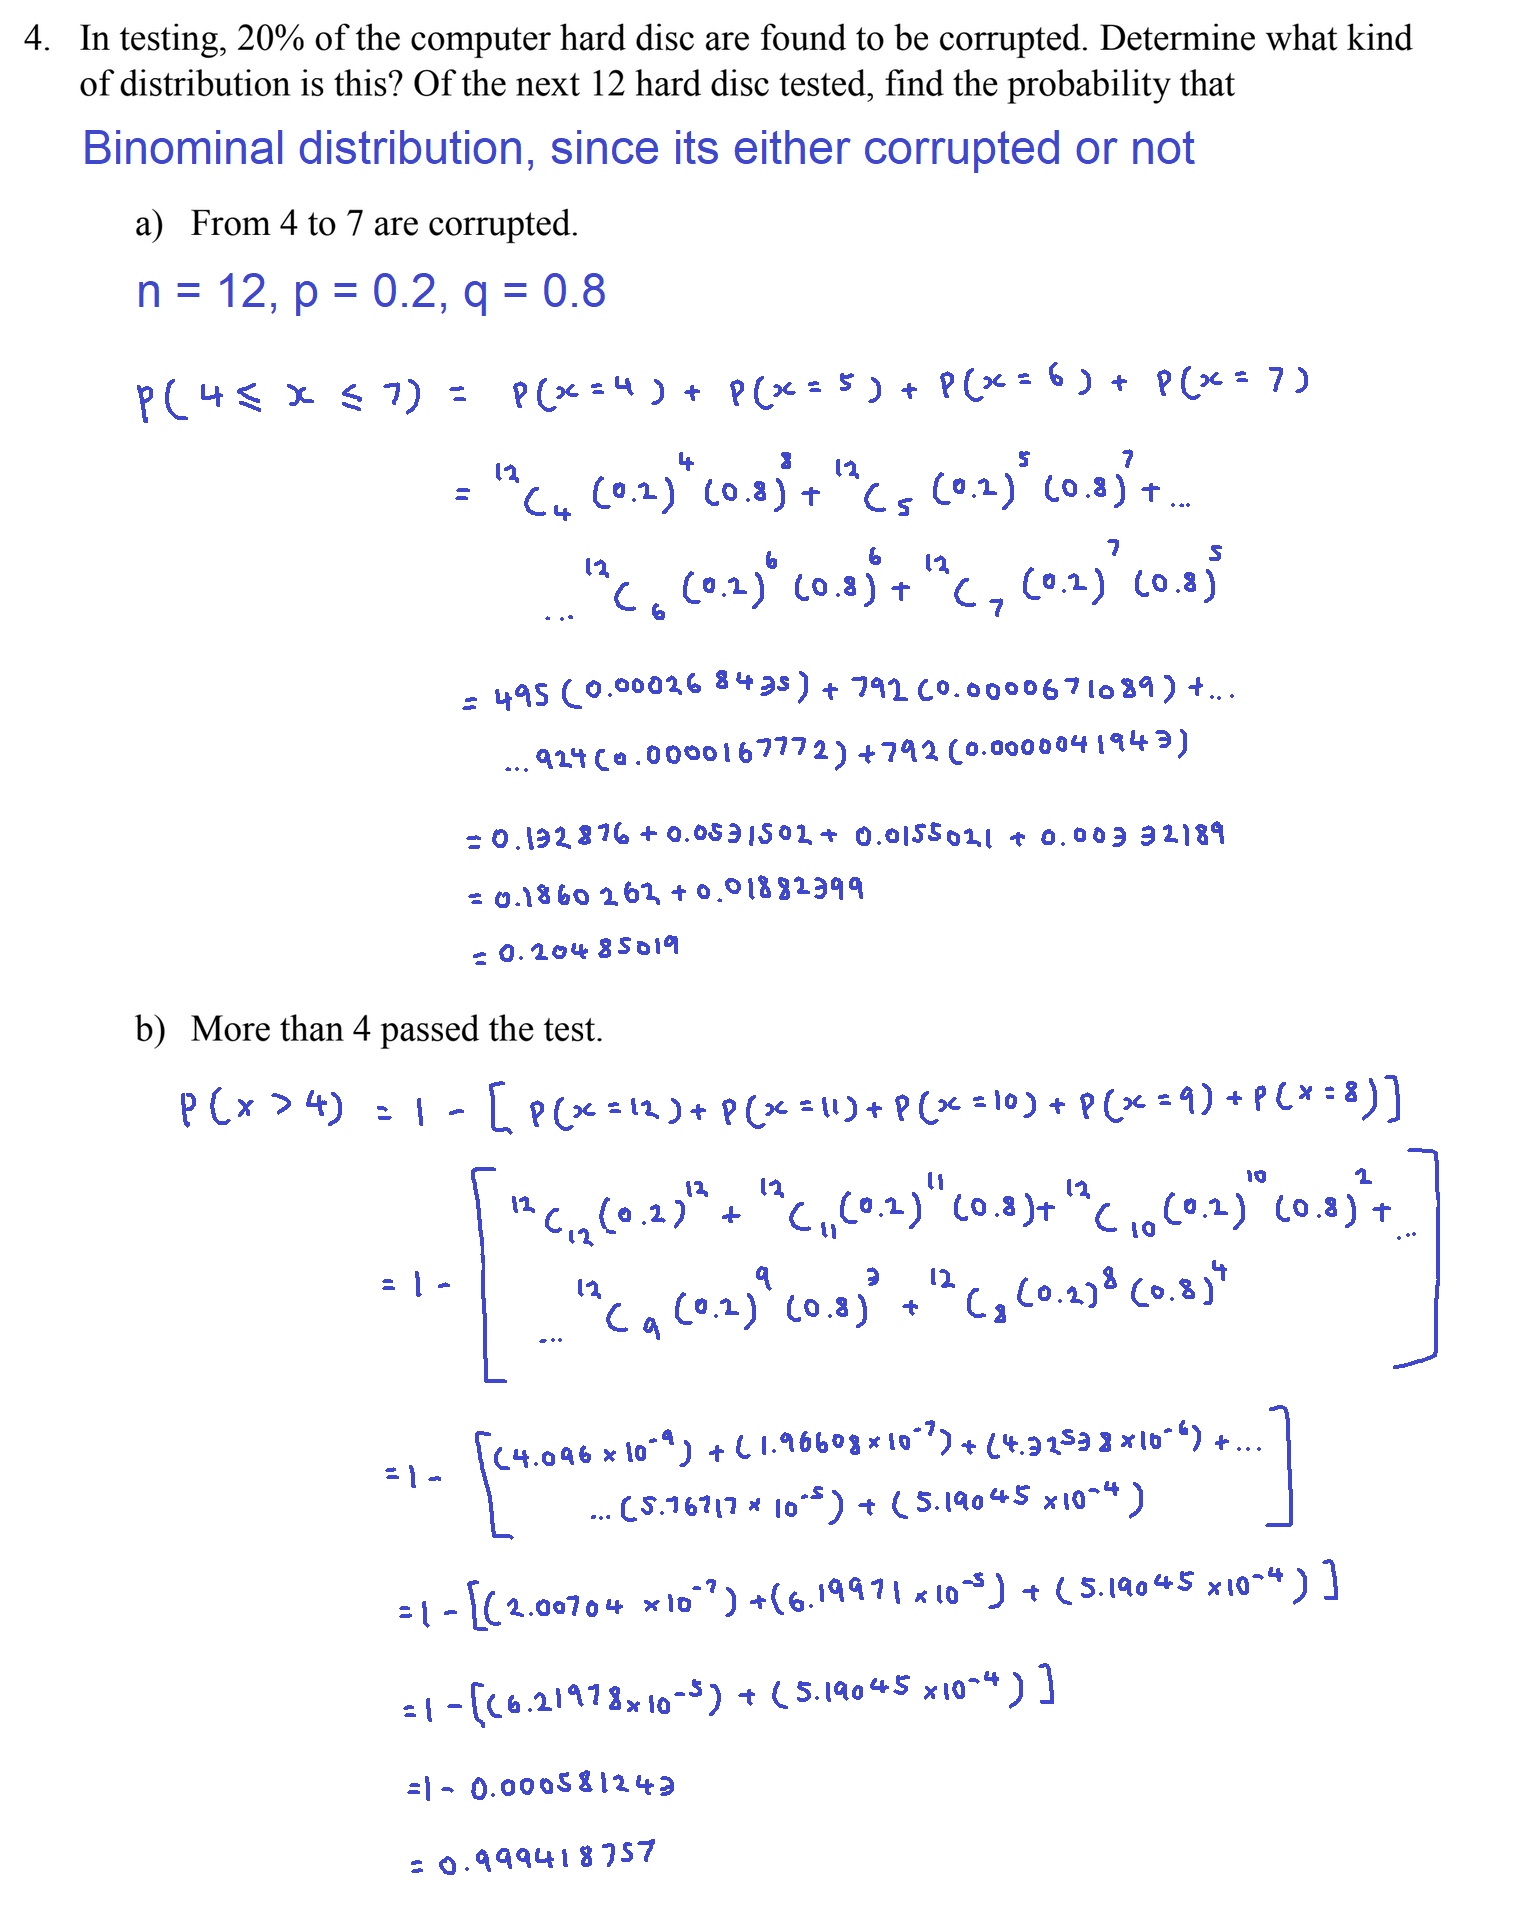 4. In testing, 20% of the computer hard disc are found to be corrupted. Determine what kind
of distribution is this? Of the next 12 hard disc tested, find the probability that
Binominal distribution, since its either corrupted or not
a) From 4 to 7 are corrupted.
n = 12, p = 0.2, q = 0.8
P(4 ≤ x ≤ 7) = P(x = 4) + P(x = 5) + P(x = 6) + P(x = 7)
= ¹²C₄ (0.2)⁴ (0.8)⁸ + ¹²C₅ (0.2)⁵ (0.8)⁷ + ...
... ¹²C₆ (0.2)⁶ (0.8)⁶ + ¹²C₇ (0.2)⁷ (0.8)⁵
= 495 (0.000268435) + 792 (0.0000671089) + ...
... 924 (0.0000167772) + 792 (0.0000041943)
= 0.132876 + 0.0531502 + 0.0155021 + 0.00332189
= 0.1860262 + 0.01882399
= 0.20485019
b) More than 4 passed the test.
P(x > 4) = 1 - [P(x = 12) + P(x = 11) + P(x = 10) + P(x = 9) + P(x = 8)]
= 1 - [¹²C₁₂ (0.2)¹² + ¹²C₁₁ (0.2)¹¹ (0.8) + ¹²C₁₀ (0.2)¹⁰ (0.8)² + ...
... ¹²C₉ (0.2)⁹ (0.8)³ + ¹²C₈ (0.2)⁸ (0.8)⁴]
= 1 - [(4.096 × 10⁻⁹) + (1.96608 × 10⁻⁷) + (4.32538 × 10⁻⁶) + ...
... (5.76717 × 10⁻⁵) + (5.19045 × 10⁻⁴)]
= 1 - [(2.00704 × 10⁻⁷) + (6.19971 × 10⁻⁵) + (5.19045 × 10⁻⁴)]
= 1 - [(6.21978 × 10⁻⁵) + (5.19045 × 10⁻⁴)]
= 1 - 0.000581243
= 0.999418757